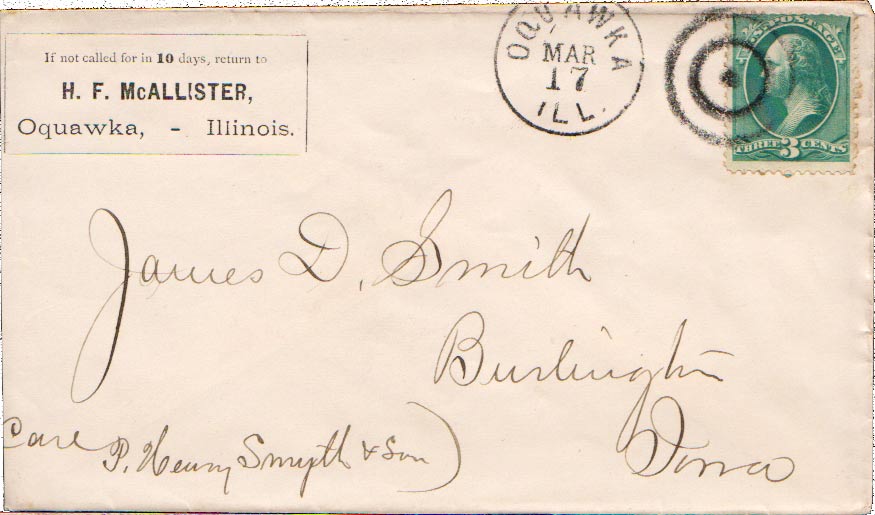 If not called for in 10 days, return to
H. F. McALLISTER,
Oquawka, - Illinois.
OQUAWKA
MAR
17
ILL.
U.S. POSTAGE
THREE 3 CENTS
James D. Smith
Burlington
Iowa
(Care P. Henry Smyth & Son)